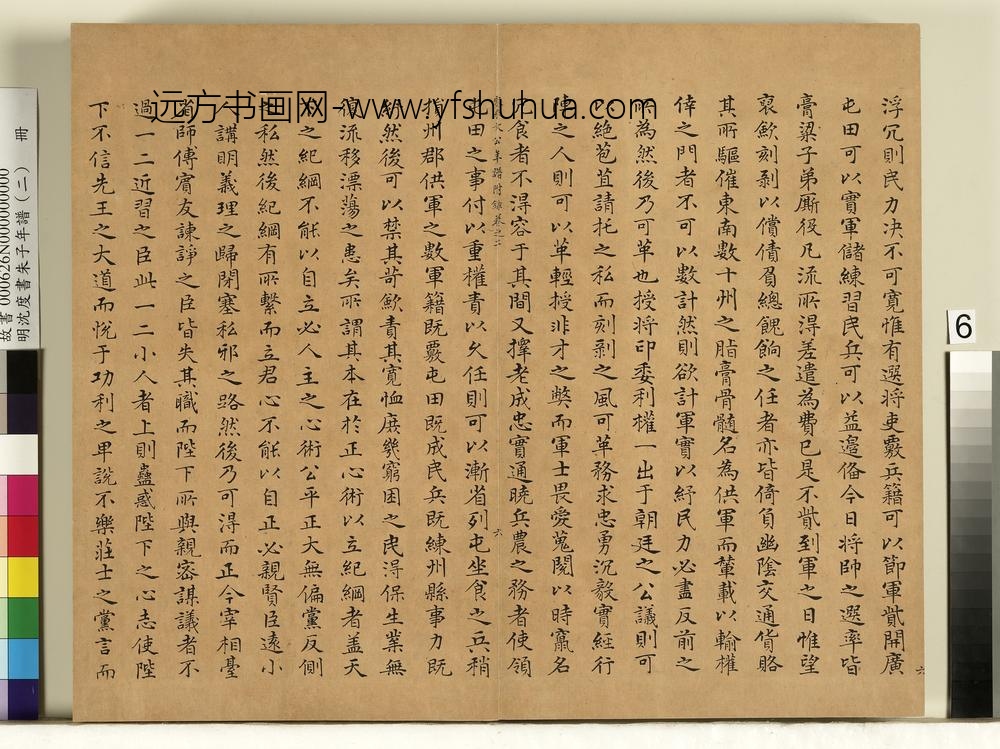 浮冗則民力决不可寬惟有選將吏覈兵籍可以節軍貲開廣
屯田可以實軍儲練習民兵可以益邊俻今日將帥之選率皆
膏粱子弟廝役凡流所得差遣為費已是不貲到軍之日惟望
裒歛刻剥以償債眉總餽餉之任者亦皆倚負幽陰交通貨賂
其所驅催東南數十州之脂膏骨髓名為供軍而輦載以輸權
倖之門者不可以數計然則欲計軍實以紓民力必盡反前之
所為然後乃可革也授將印委利權一出于朝廷之公議則可
以絕苞苴請托之私而刻剥之風可革務求忠勇沉毅實經行
陣之人則可以革輕授非才之獘而軍士畏愛蒐閱以時竄名
冗食者不得容于其間又擇老成忠實通曉兵農之務者使領
公年譜附錄卷之二
六
屯田之事付以重權責以久任則可以漸省列屯坐食之兵稍
損州郡供軍之數軍籍既覈屯田既成民兵既練州縣事力既
紓然後可以禁其苛歛責其寬恤庶幾窮困之民得保生業無
復流移漂蕩之患矣所謂其本在於正心術以立紀綱者盖天
下之紀綱不能以自立必人主之心術公平正大無偏黨反側
之私然後紀綱有所繫而立君心不能以自正必親賢臣遠小
人講明義理之歸閉塞私邪之路然後乃可得而正今宰相臺
省師傅賓友諫諍之臣皆失其職而陛下所與親密謀議者不
過一二近習之臣此一二小人者上則蠱惑陛下之心志使陛
下不信先王之大道而悅于功利之卑說不樂莊士之黨言而
远方书画网-www.yfshuhua.com
故書 000626N000000000
明沈度書朱子年譜(二) 冊
6